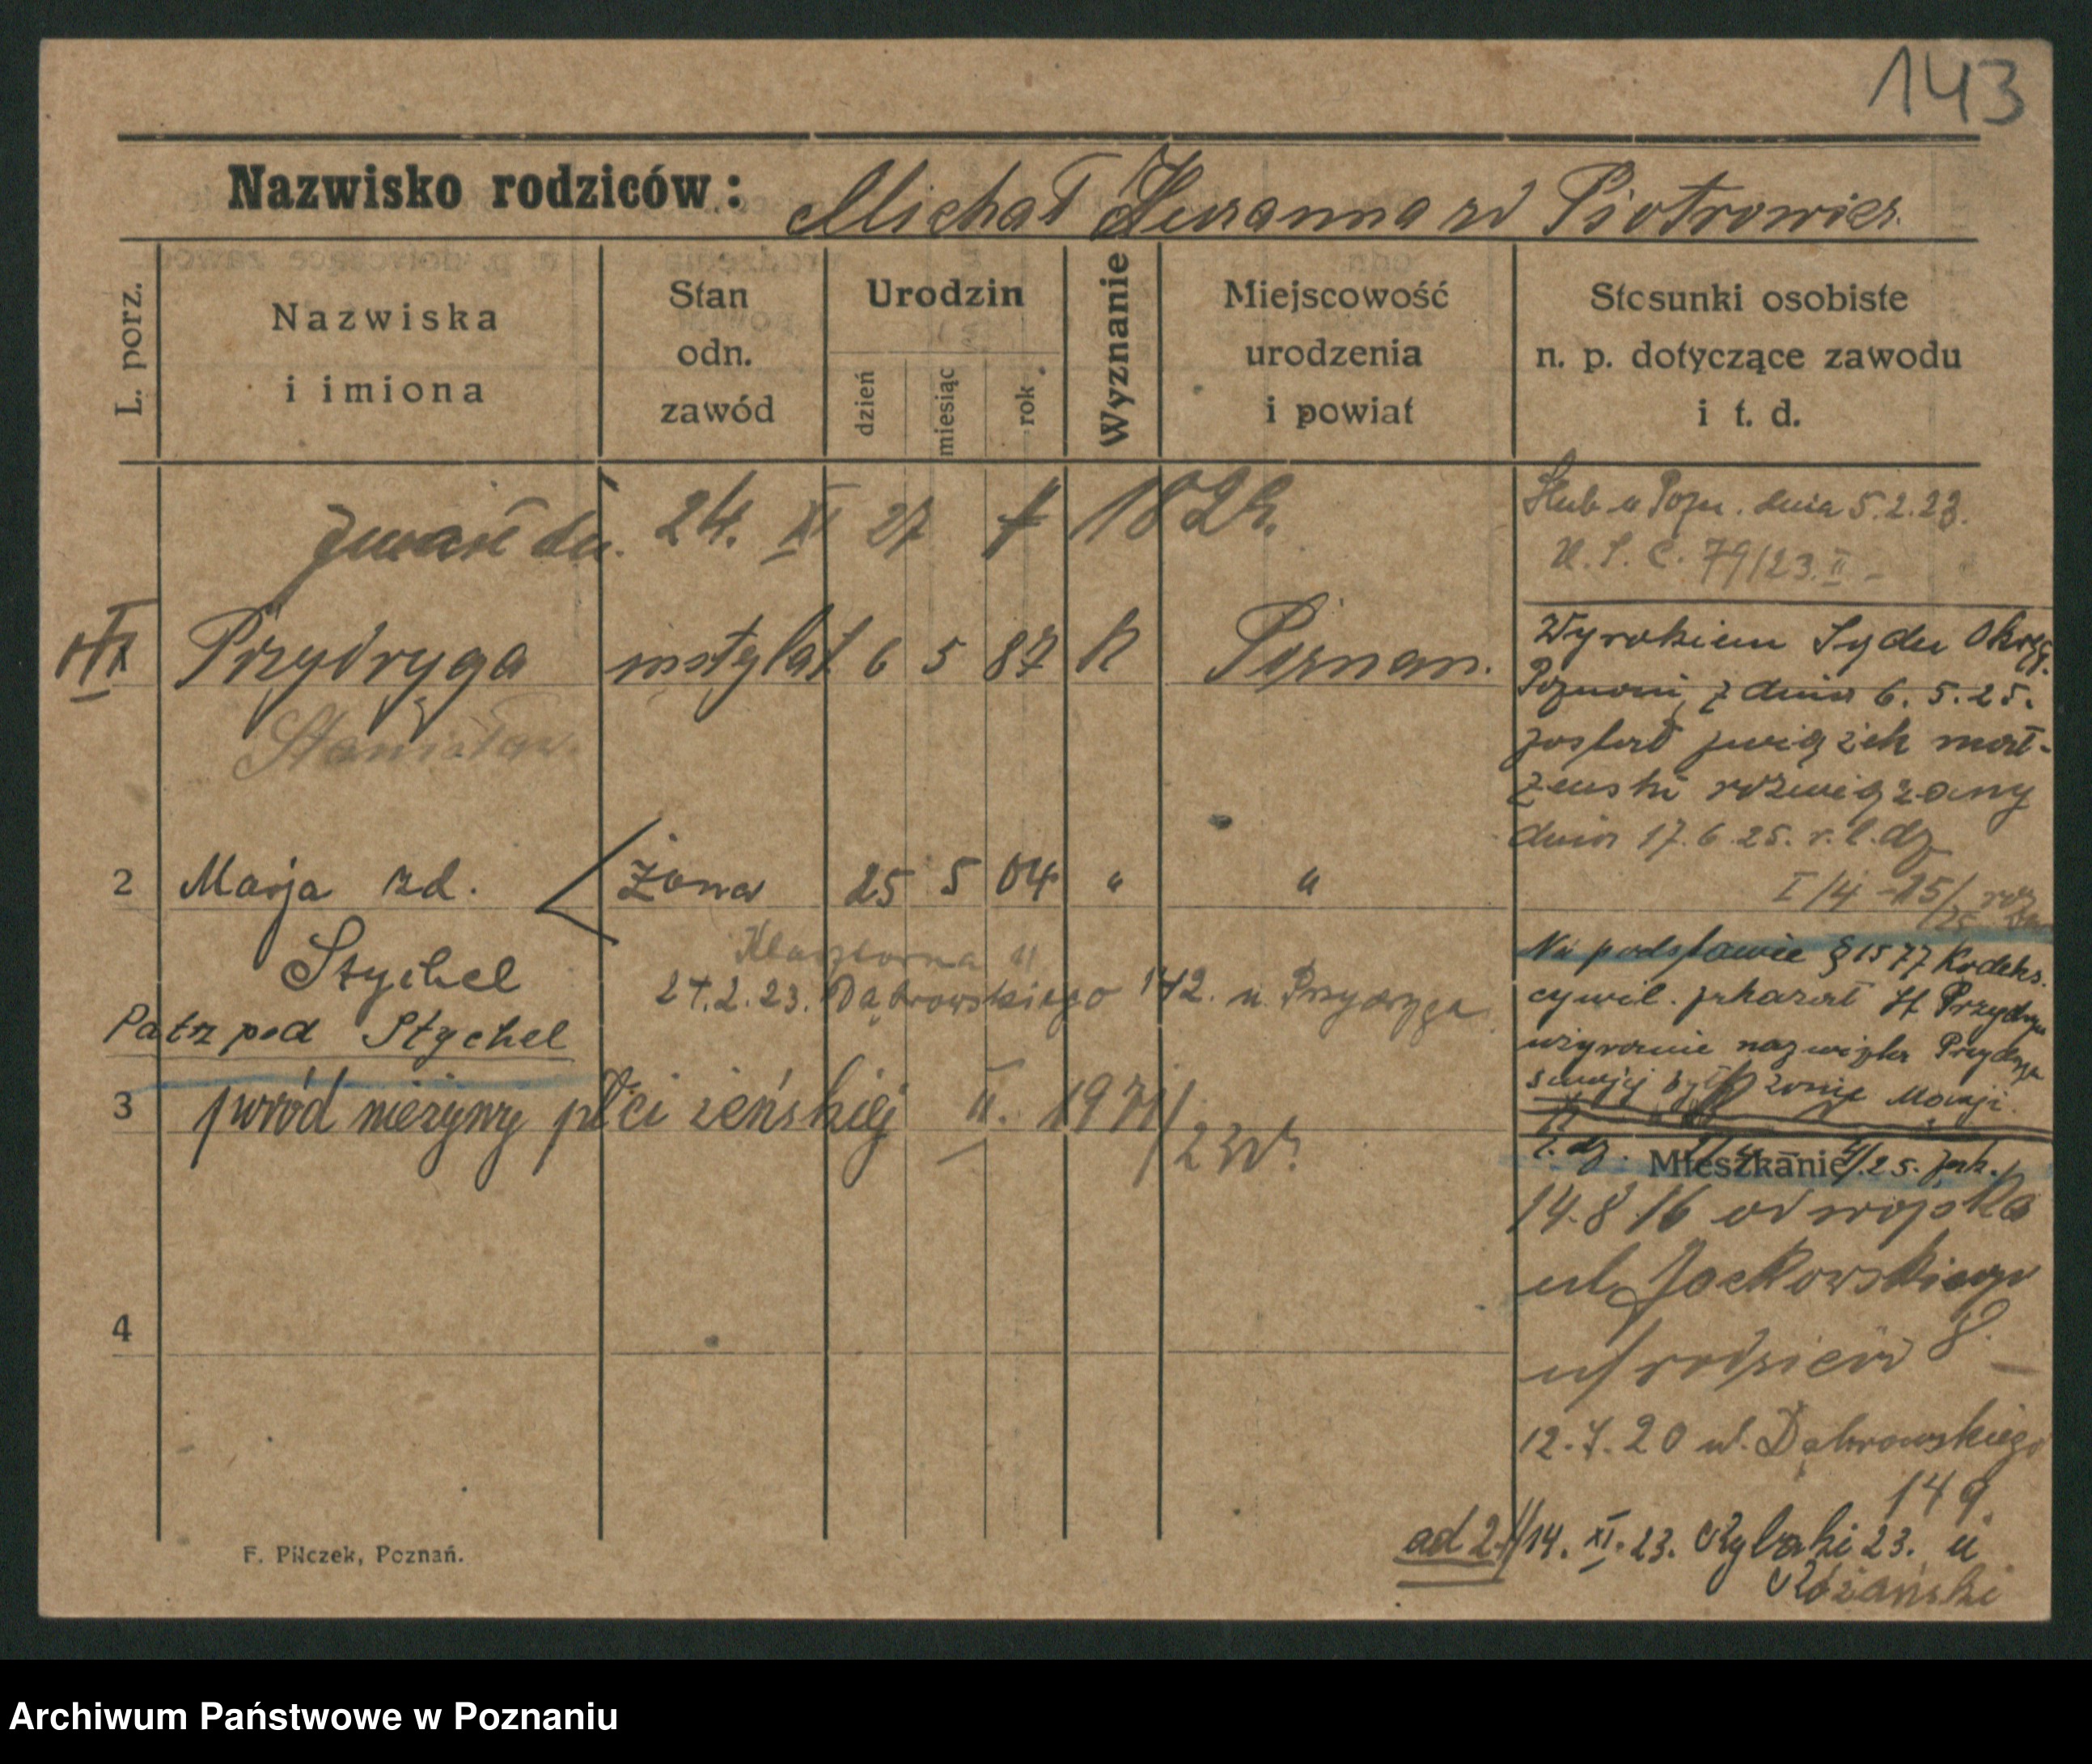 143
Nazwisko rodziców: Michał Zuzanna zd Piotrowicz
L. porz.
Nazwiska
i imiona
Stan
odn.
zawód
Urodzin
dzień
miesiąc
rok
Wyznanie
Miejscowość
urodzenia
i powiat
Stosunki osobiste
n. p. dotyczące zawodu
i t. d.
zmarł dn. 24. XI 27
Ślub w Pozn. dnia 5.2.23.
U. S. C. 79/23. II -
Przydryga instylat. 6 5 87 K Poznan.
Stanisław
Wyrokiem Sądu Okręg.
Poznani z dnia 6. 5. 25.
został związek mał-
żenski rozwiązany
dnia 17. 6. 25. r. l. dz
2 Marja zd. żona 25 5 04 " "
Stychel
Klasztorna 11
27. 2. 23. Dąbrowskiego 142. u. Przydryga
Patrz pod Stychel
Na podstawie § 1577 Kodeks.
cywil. zakazał St Przydryga
używanie nazwiska Przydryga
swojej był żonie Marji.
l. dz.
3 poród nieżywy płci żeńskiej II.
Mieszkanie
14. 8 16 od wojska
ul. Jackowskiego
u/ rodziców 8
4
12. 7. 20 ul. Dąbrowskiego
149.
ad 2. 14. XI. 23. Rybaki 23. u
Różański
F. Pilczek, Poznań.
Archiwum Państwowe w Poznaniu